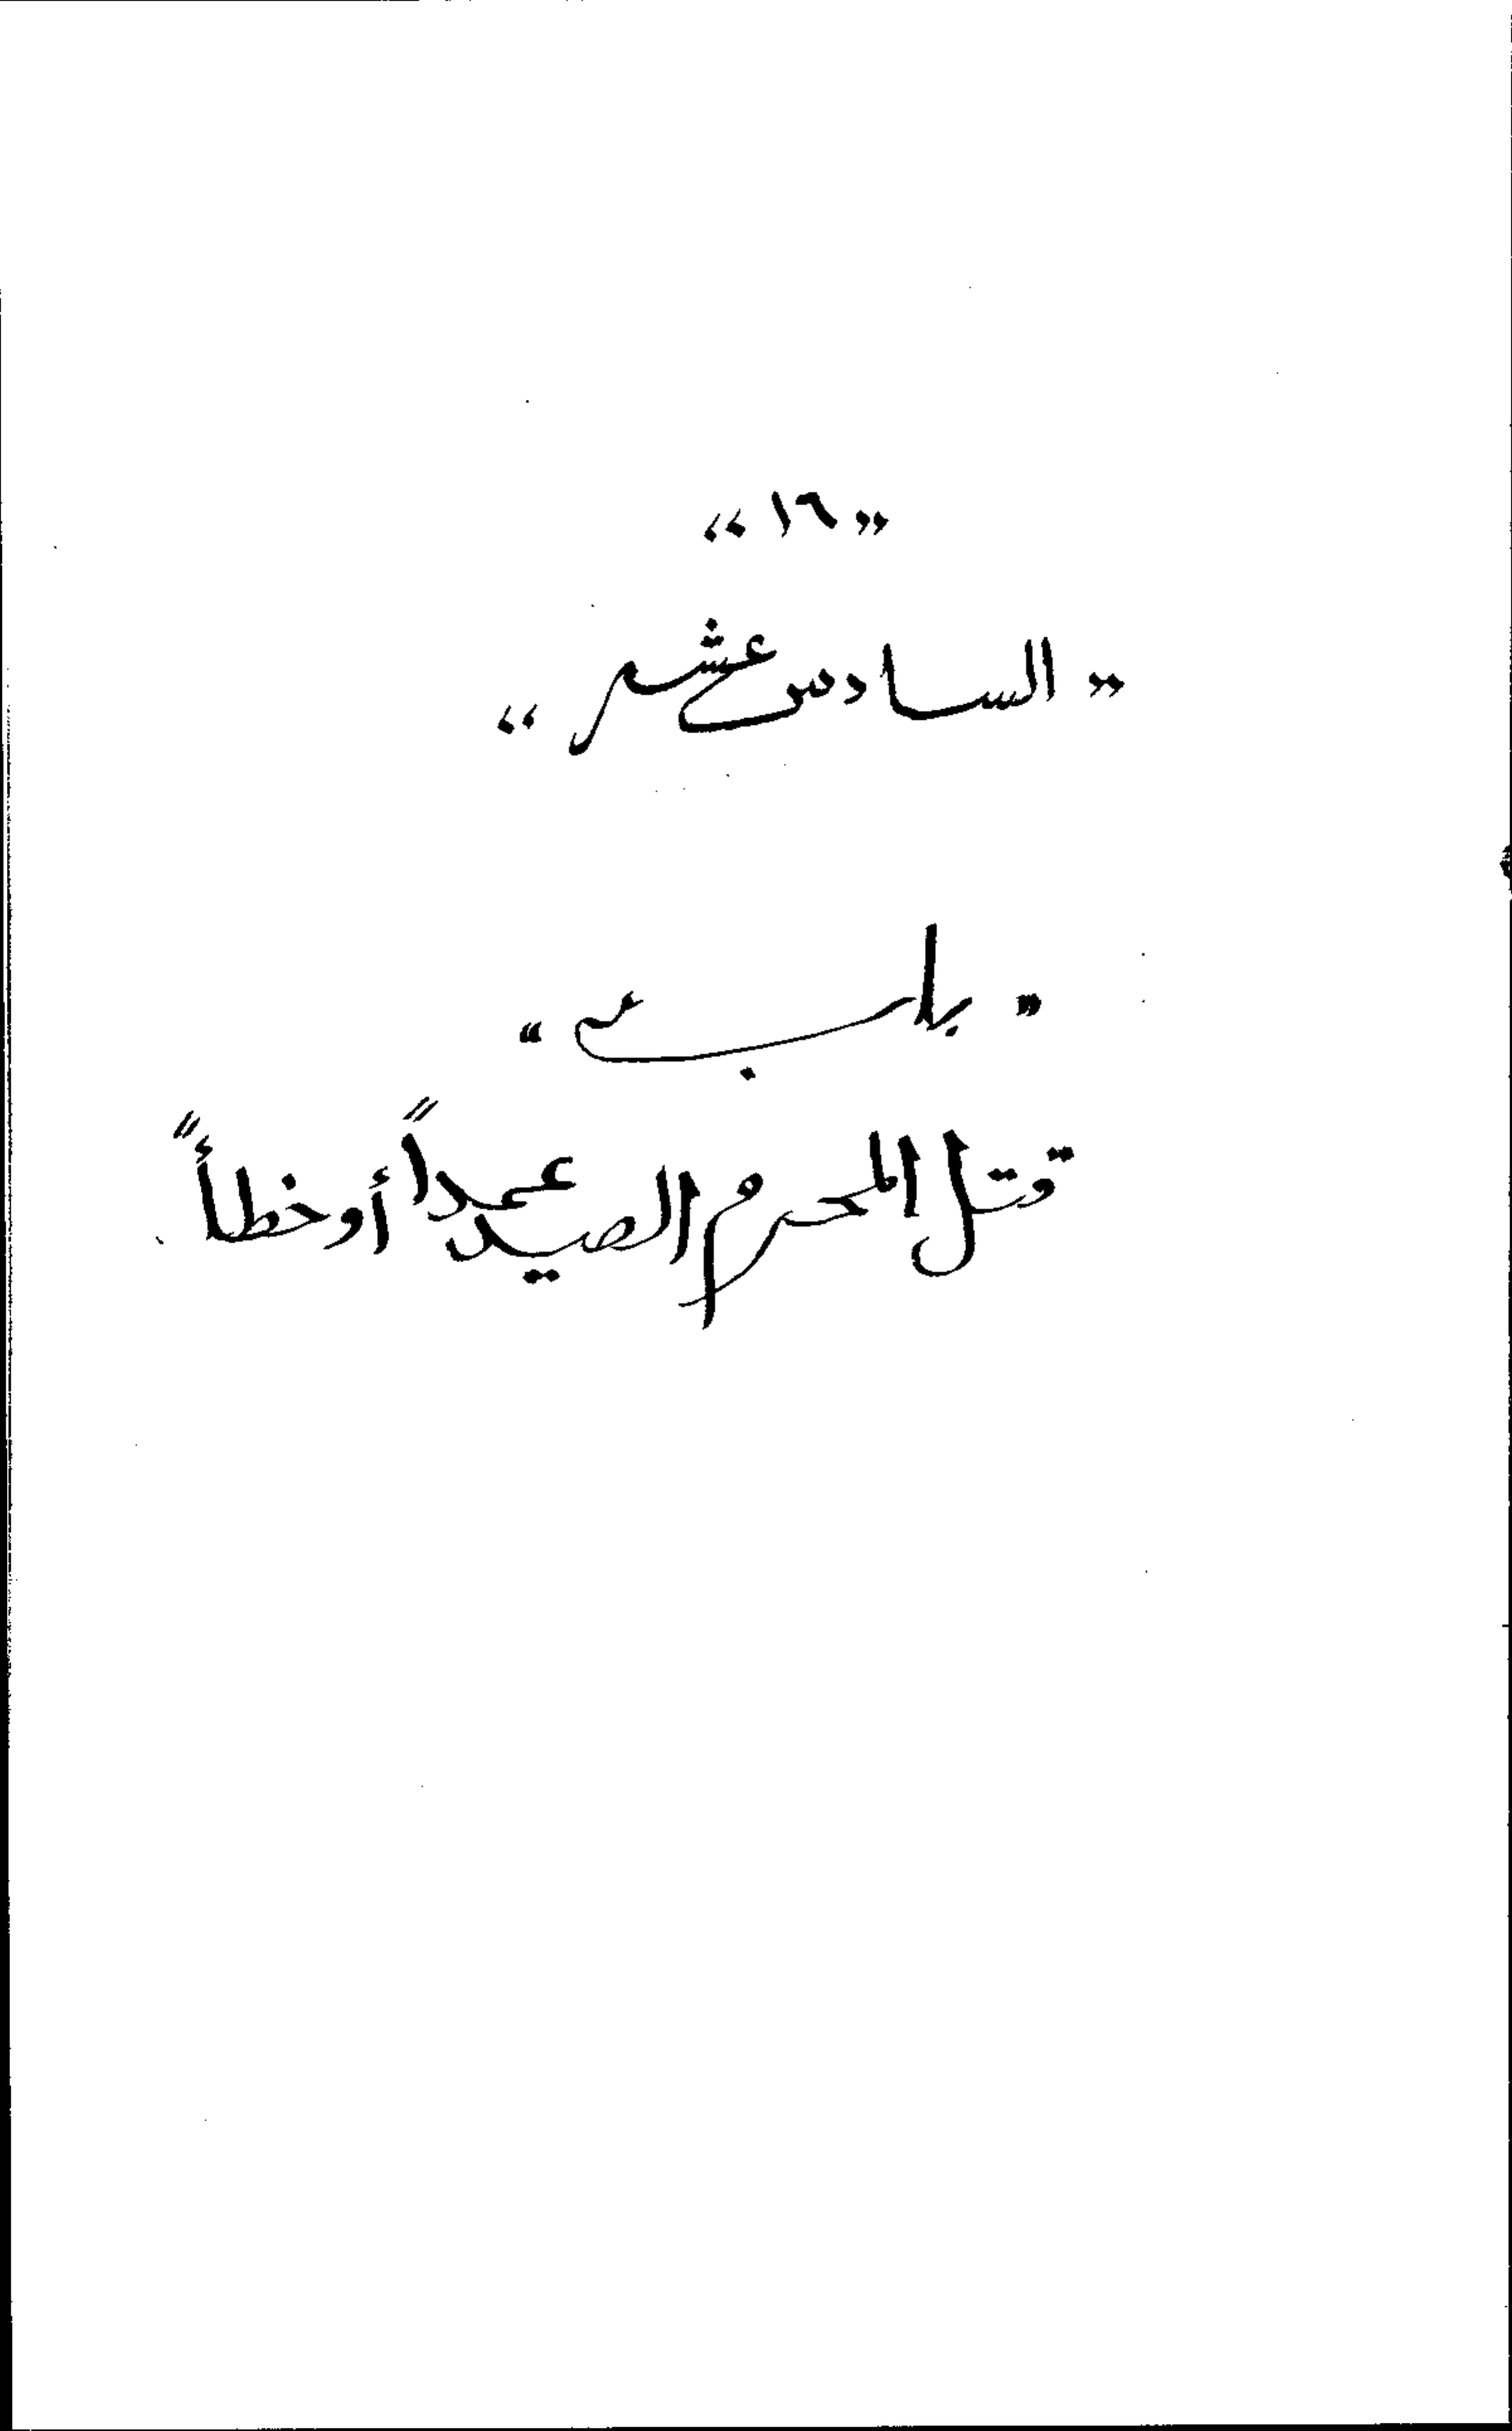 « ١٦ »
« السادس عشر »
« باب »
قتل المحرم الصيد عمداً أو خطأً